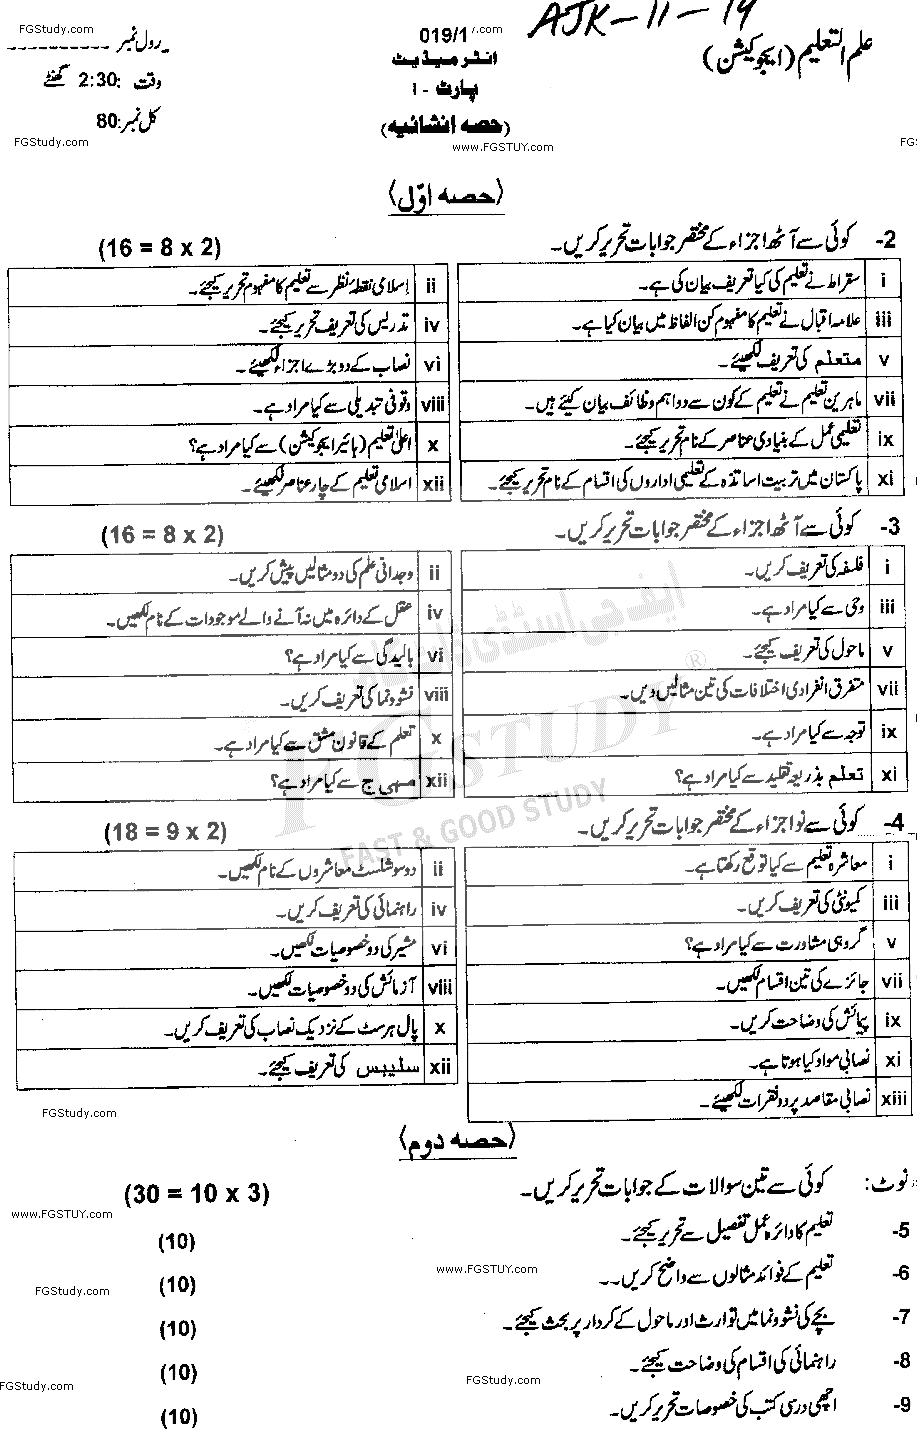 FGStudy.com
AJK-11-19
019/1 .com
علم التعلیم (ایجوکیشن)
رول نمبر ----------
انٹر میڈیٹ
وقت :2:30 گھنٹے
پارٹ - I
کل نمبر:80
(حصہ انشائیہ)
FGStudy.com
www.FGSTUY.com
FG
(حصہ اوّل)
2- کوئی سے آٹھ اجزاء کے مختصر جوابات تحریر کریں۔ (16 = 8 x 2)
i سقراط نے تعلیم کی کیا تعریف بیان کی ہے۔
ii اسلامی نقطۂ نظر سے تعلیم کا مفہوم تحریر کیجئے۔
iii علامہ اقبال نے تعلیم کا مفہوم کن الفاظ میں بیان کیا ہے۔
iv تدریس کی تعریف تحریر کیجئے۔
v متعلم کی تعریف لکھیئے۔
vi نصاب کے دو بڑے اجزاء لکھیئے۔
vii ماہرین تعلیم نے تعلیم کے کون سے دو اہم وظائف بیان کیئے ہیں۔
viii وقوفی تبدیلی سے کیا مراد ہے۔
ix تعلیمی عمل کے بنیادی عناصر کے نام تحریر کیجئے۔
x اعلیٰ تعلیم (ہائیر ایجوکیشن) سے کیا مراد ہے؟
xi پاکستان میں تربیت اساتذہ کے تعلیمی اداروں کی اقسام کے نام تحریر کیجئے۔
xii اسلامی تعلیم کے چار عناصر لکھیئے۔
3- کوئی سے آٹھ اجزاء کے مختصر جوابات تحریر کریں۔ (16 = 8 x 2)
i فلسفہ کی تعریف کریں۔
ii وجدانی علم کی دو مثالیں پیش کریں۔
iii وحی سے کیا مراد ہے۔
iv عقل کے دائرہ میں نہ آنے والے موجودات کے نام لکھیں۔
v ماحول کی تعریف کیجئے۔
vi بالیدگی سے کیا مراد ہے؟
vii متفرق انفرادی اختلافات کی تین مثالیں دیں۔
viii نشوونما کی تعریف کریں۔
ix توجہ سے کیا مراد ہے۔
x تعلم کے قانون مشق سے کیا مراد ہے۔
xi تعلم بذریعہ تقلید سے کیا مراد ہے؟
xii مہیج سے کیا مراد ہے؟
ایف جی اسٹڈی ڈاٹ کام
FGSTUDY ®
FAST & GOOD STUDY
4- کوئی سے نو اجزاء کے مختصر جوابات تحریر کریں۔ (18 = 9 x 2)
i معاشرہ تعلیم سے کیا توقع رکھتا ہے۔
ii دو سوشلسٹ معاشروں کے نام لکھیں۔
iii کمیونٹی کی تعریف کریں۔
iv راہنمائی کی تعریف کریں۔
v گروہی مشاورت سے کیا مراد ہے؟
vi مشیر کی دو خصوصیات لکھیں۔
vii جائزے کی تین اقسام لکھیں۔
viii آزمائش کی دو خصوصیات لکھیں۔
ix پیمائش کی وضاحت کریں۔
x پال ہرسٹ کے نزدیک نصاب کی تعریف کریں۔
xi نصابی مواد کیا ہوتا ہے۔
xii سلیبس کی تعریف کیجئے۔
xiii نصابی مقاصد پر دو فقرات لکھیئے۔
FGStudy.com
(حصہ دوم)
نوٹ: کوئی سے تین سوالات کے جوابات تحریر کریں۔ (30 = 10 x 3)
www.FGSTUY.com
5- تعلیم کا دائرہ عمل تفصیل سے تحریر کیجئے۔ (10)
www.FGSTUY.com
6- تعلیم کے فوائد مثالوں سے واضح کریں۔۔ (10)
FGStudy.com
7- بچے کی نشوونما میں توارث اور ماحول کے کردار پر بحث کیجئے۔ (10)
8- راہنمائی کی اقسام کی وضاحت کیجئے۔ (10)
FGStudy.com
FGStudy.com
9- اچھی درسی کتب کی خصوصیات تحریر کریں۔ (10)